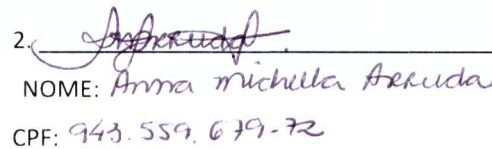 2.
NOME: Anna Michella Arruda
CPF: 943.559.679-72